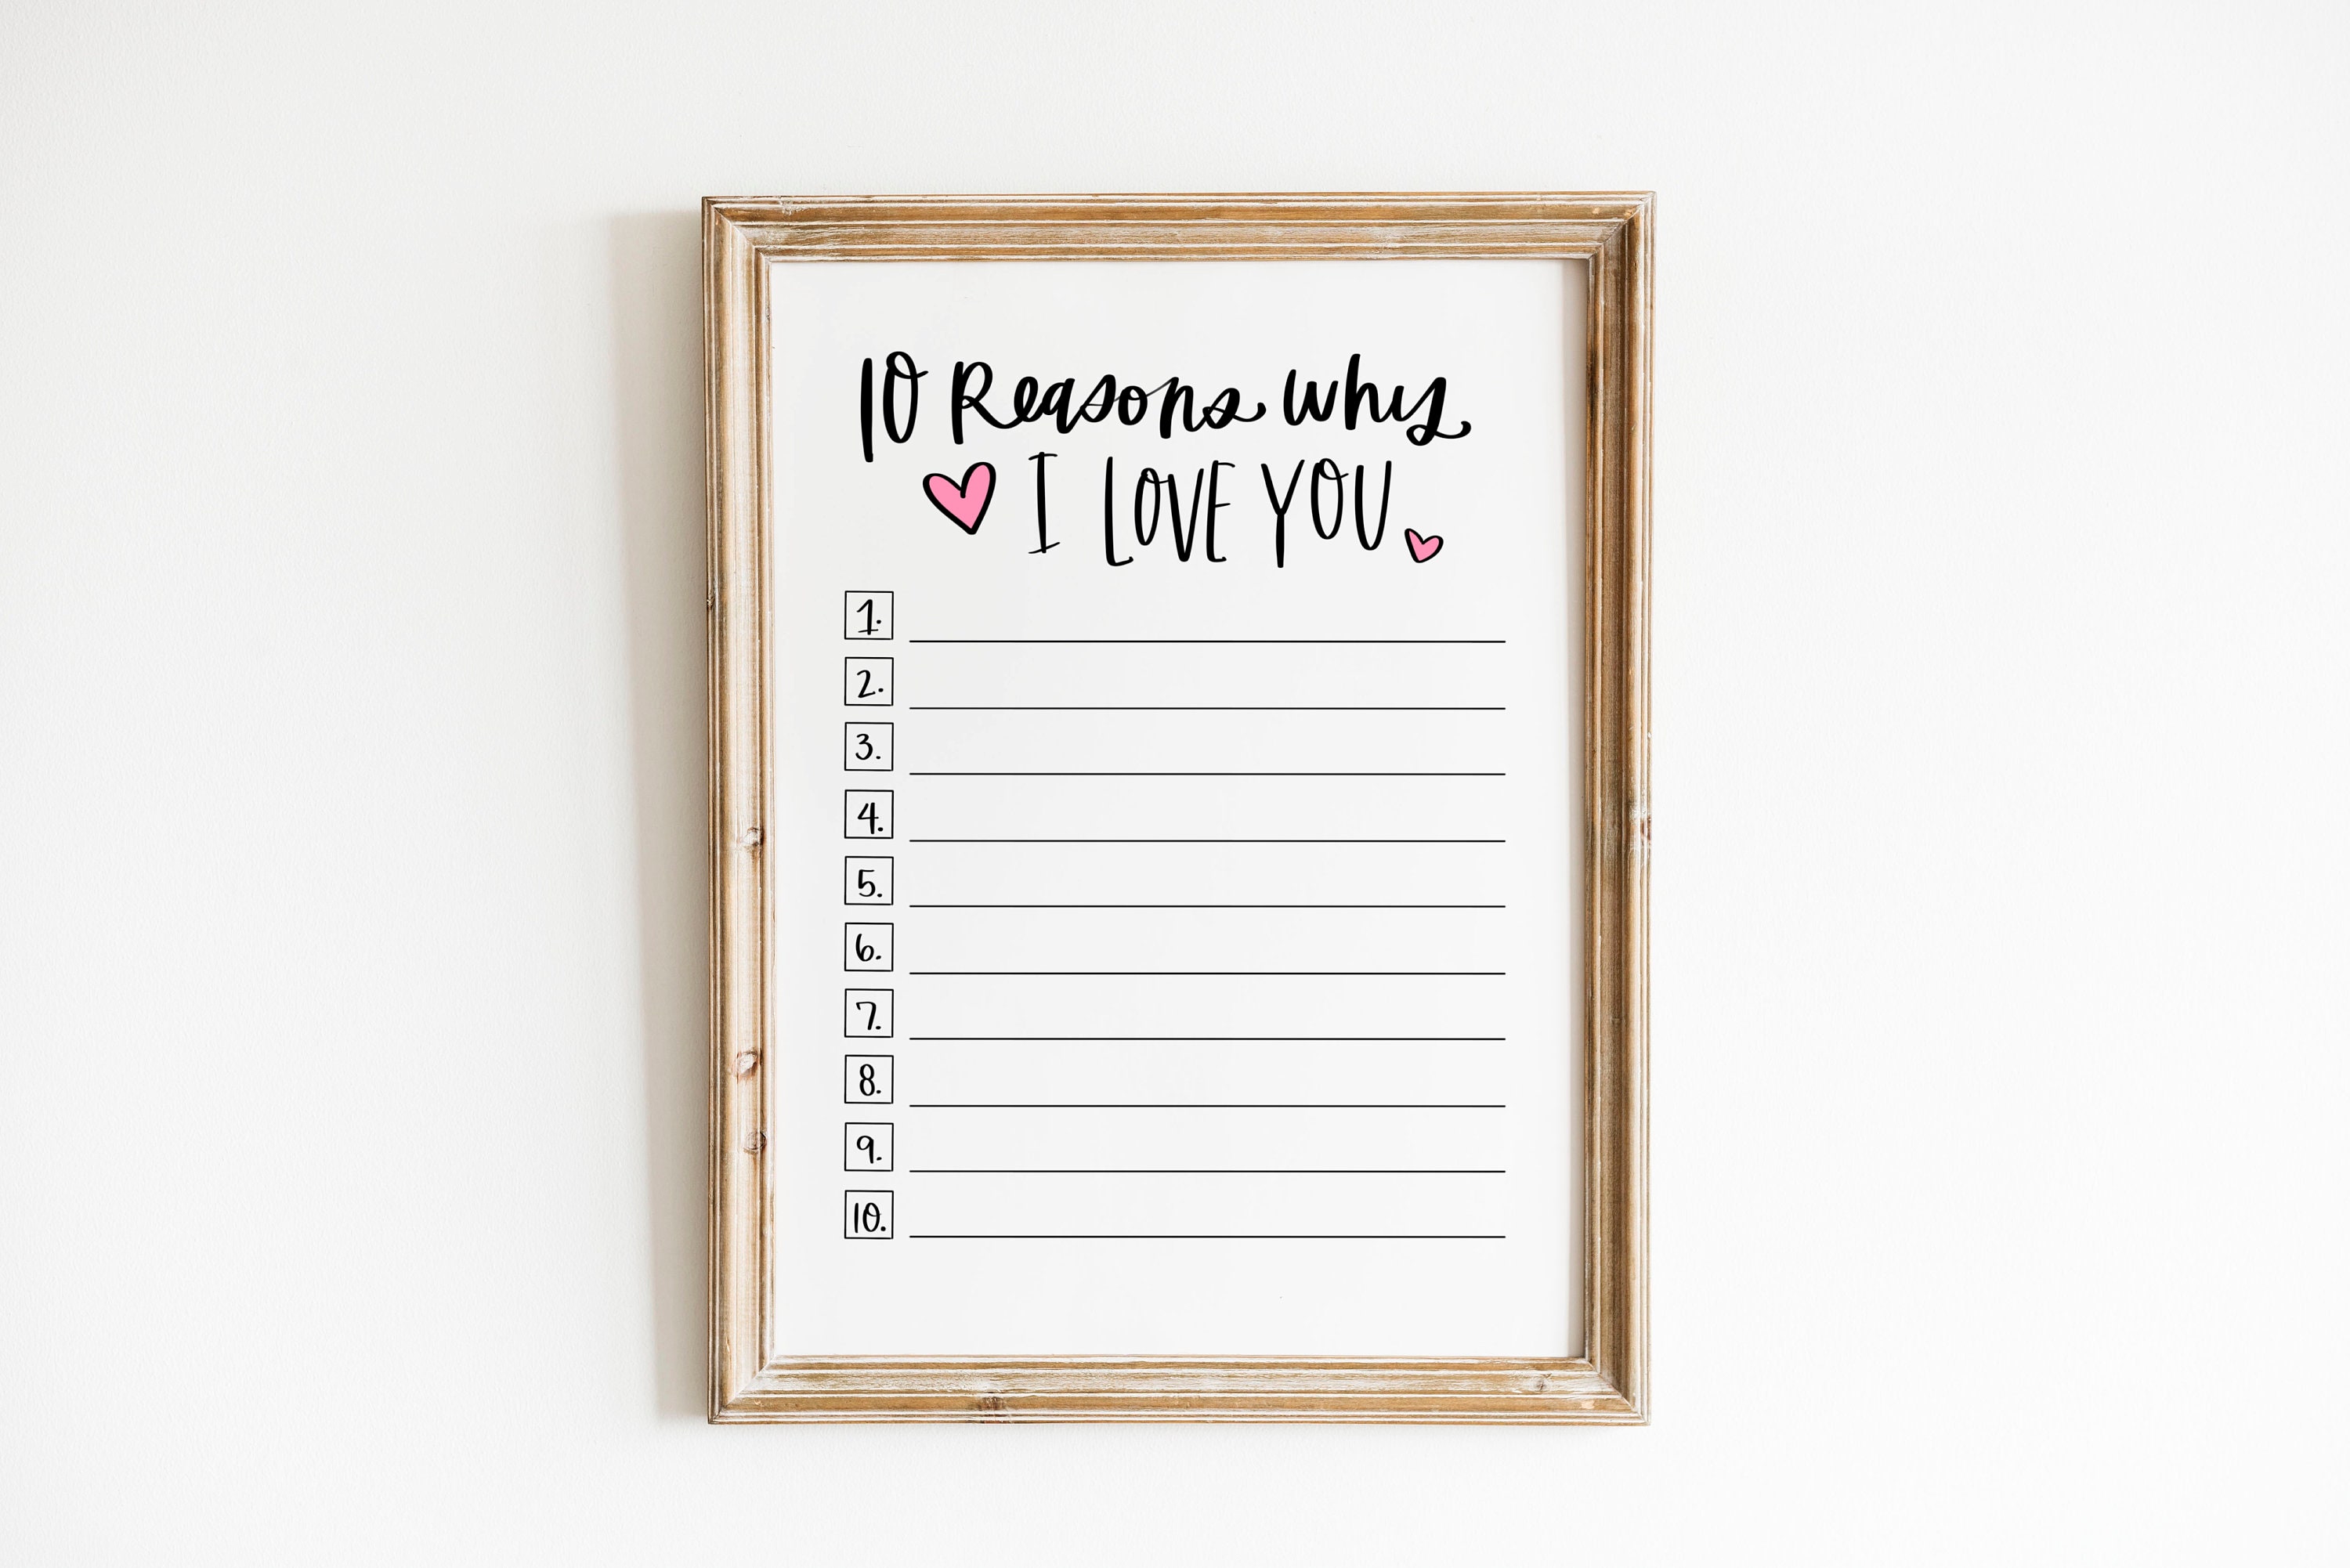 10 Reasons Why
I LOVE YOU
1.
2.
3.
4.
5.
6.
7.
8.
9.
10.